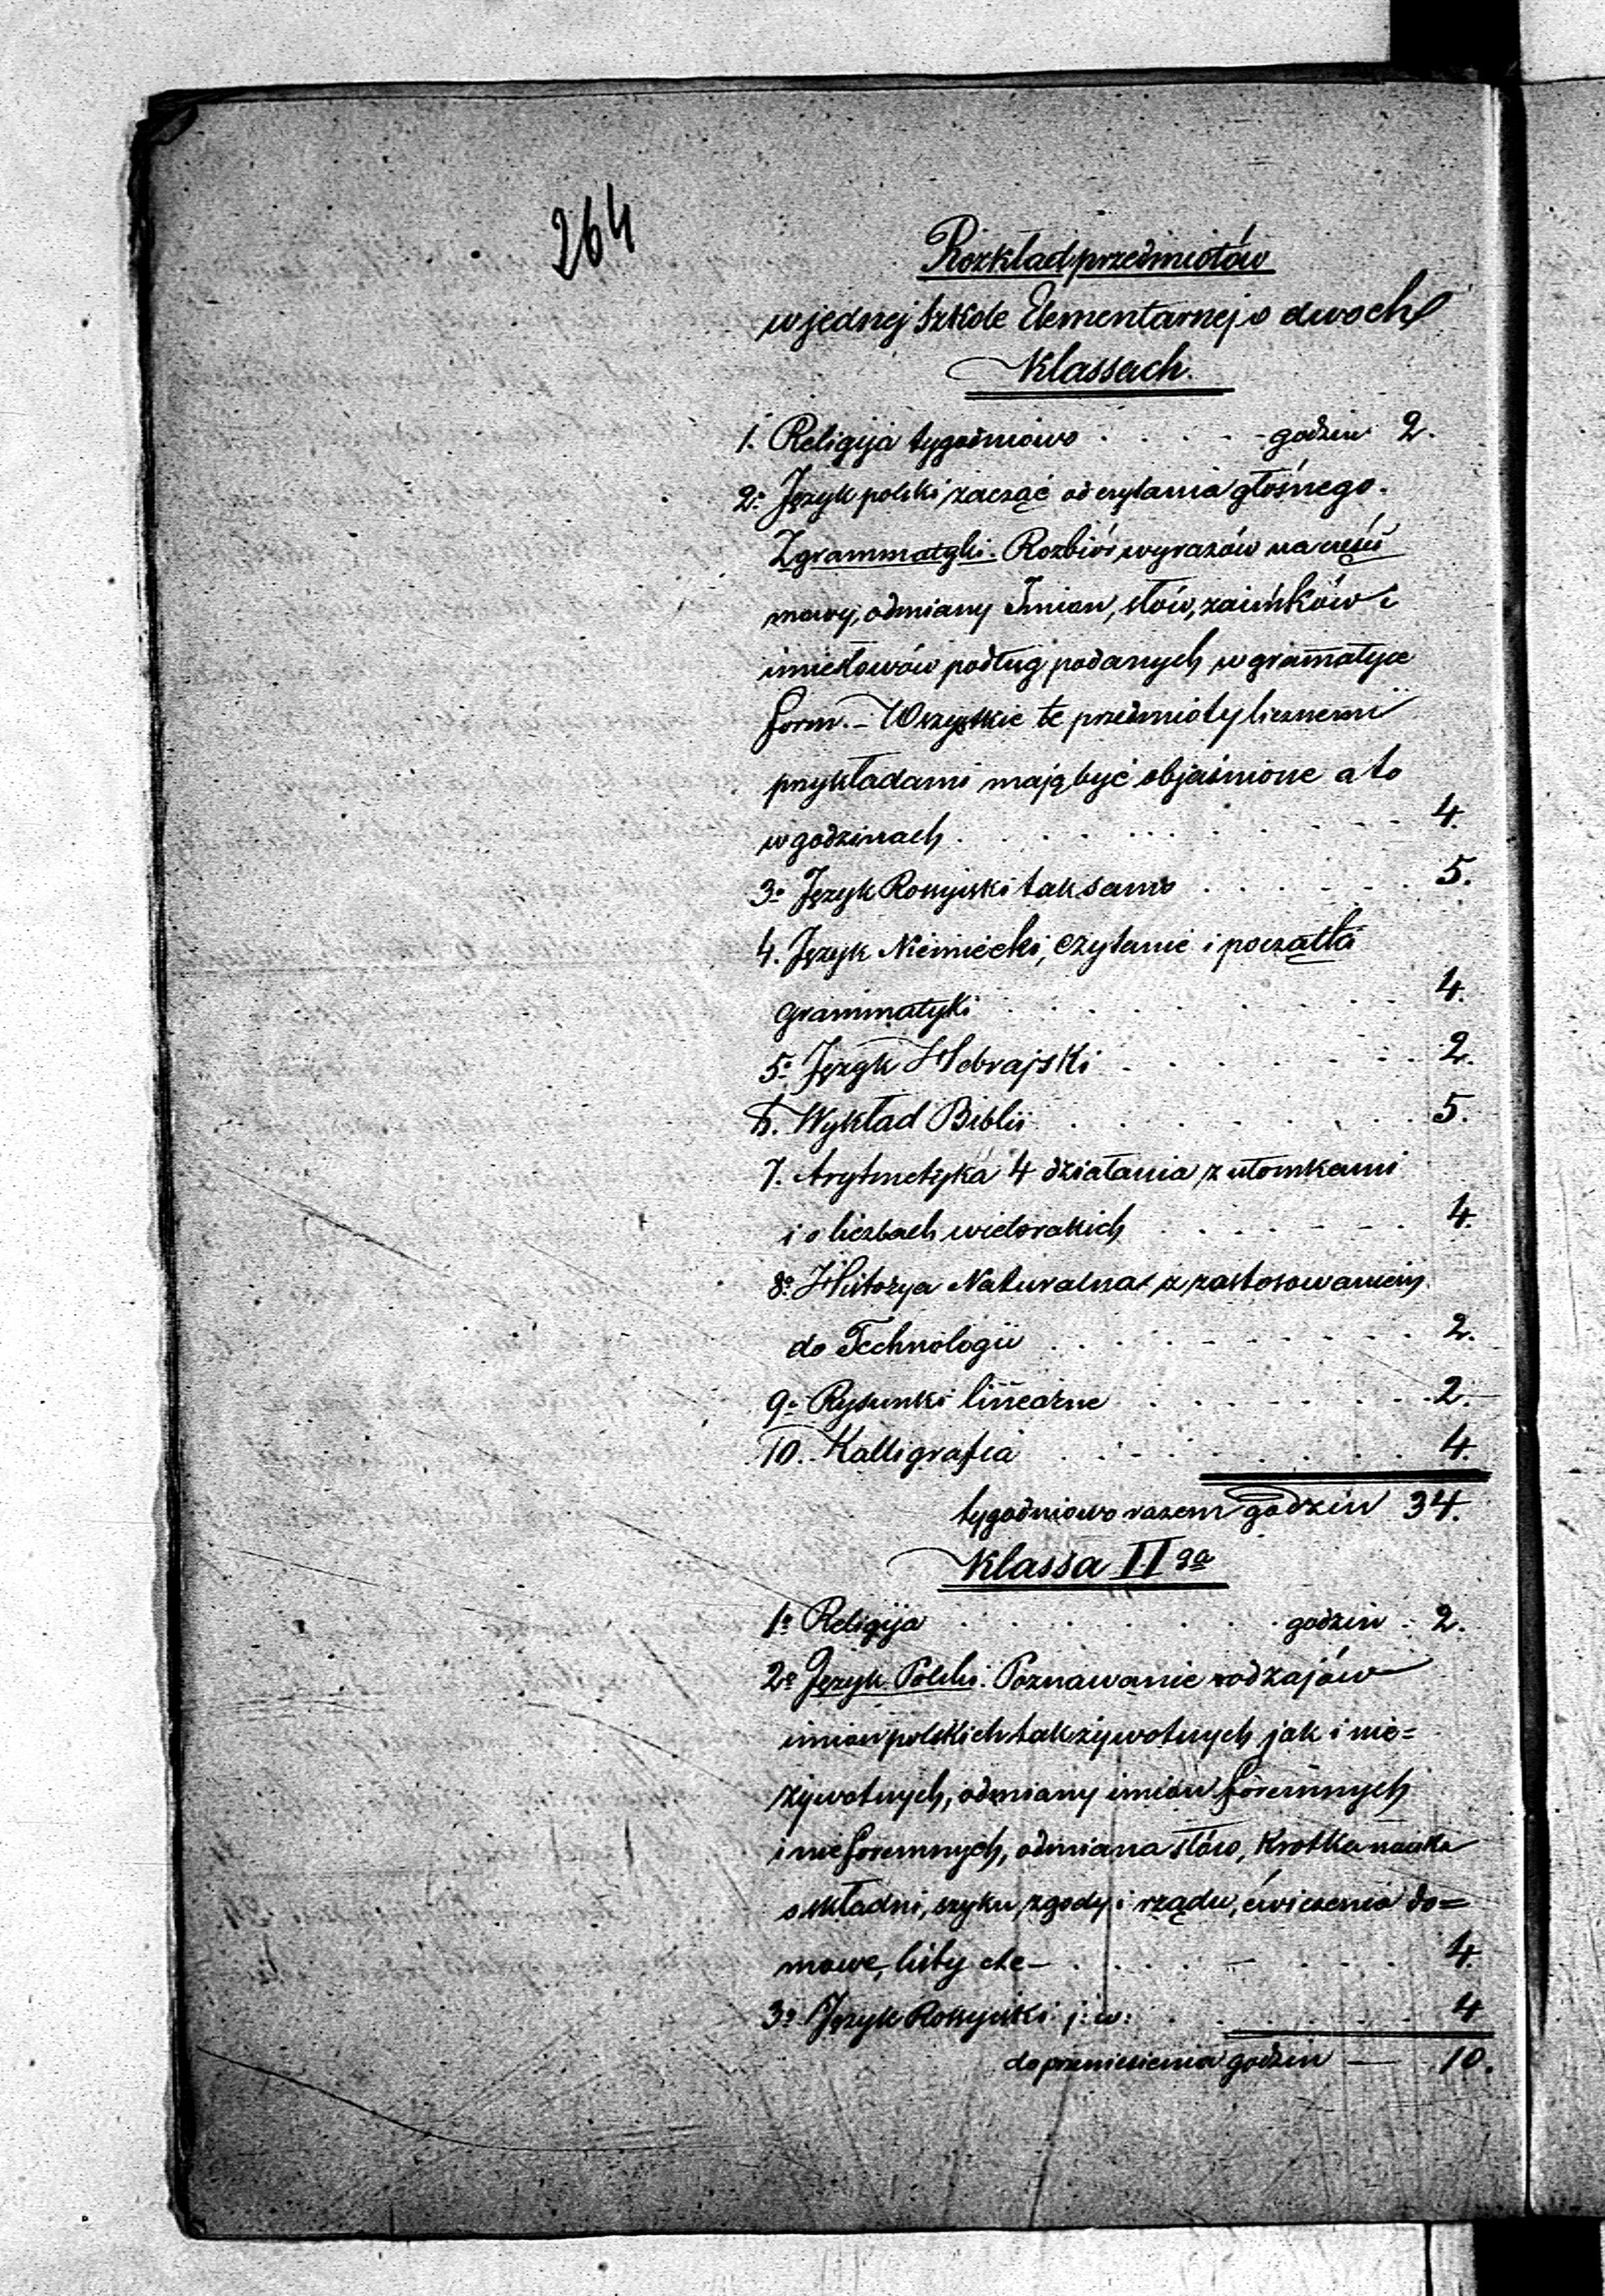 264
Rozkład przedmiotów
w jednej Szkole Elementarnej o dwoch
Klassach.
1. Religija tygodniowo . . . . . godzin 2.
2o Język polski zacząć od czytania głośnego.
Z grammatyki. Rozbiór wyrazów na części
mowy, odmiany Imion, słów, zaimków i
imiesłowów podług podanych w gramatyce
form. – Wszystkie te przedmioty licznemi
przykładami mają być objaśnione a to
w godzinach . . . . . . . . . . . 4.
3o Język Rossyiski tak samo . . . . . . 5.
4. Język Niemiecki, Czytanie i początki
grammatyki . . . . . . . . . . 4.
5o Język Hebrajski . . . . . . . . 2.
6. Wykład Biblii . . . . . . . . 5.
7. Arytmetyka 4 działania z ułomkami
i o liczbach wielorakich . . . . . . . 4.
8o Historya Naturalna z zastosowaniem
do Technologii . . . . . . . . . . 2.
9o Rysunki linearne . . . . . . . . 2.
10. Kalligrafia . . . . . . . . . 4.
tygodniowo razem godzin 34.
Klassa II ga
1o Religija . . . . . . . . godzin . 2.
2o Język Polski. Poznawanie rodzajów
imion polskich tak żywotnych jak i nie=
żywotnych, odmiany imion foremnych
i nieforemnych, odmiana słów, Krotka nauka
o składni, szyku, zgody i rządu, ćwiczenia do=
mowe, listy etc – . . . . . . . . 4.
3o Język Rossyiski j: w: . . . . . . . 4
do przeniesienia godzin — 10.